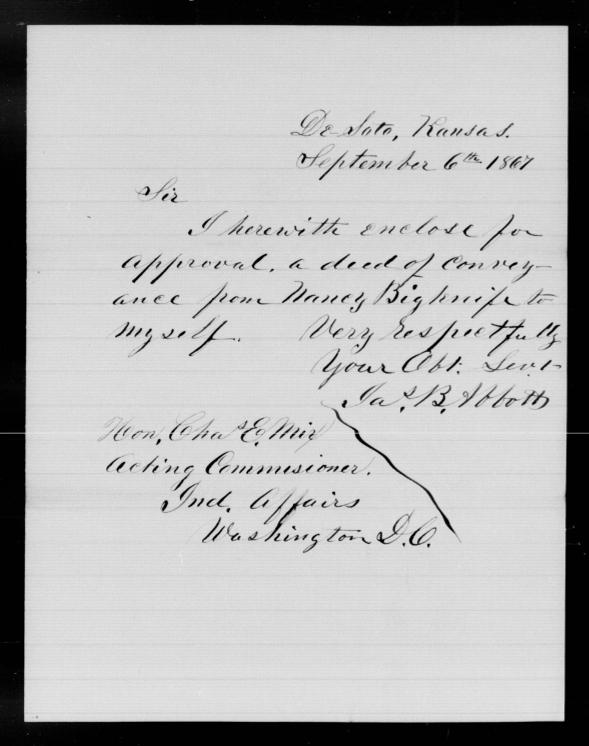 De Soto, Kansas.
September 6th 1867
Sir
I herewith enclose for
approval, a deed of convey-
ance from Nancy Bigknife to
myself. Very respectfully
Your Obt. Servt
Jas. B. Abbott
Hon. Chas E. Mix
Acting Commisioner.
Ind. Affairs
Washington D.C.